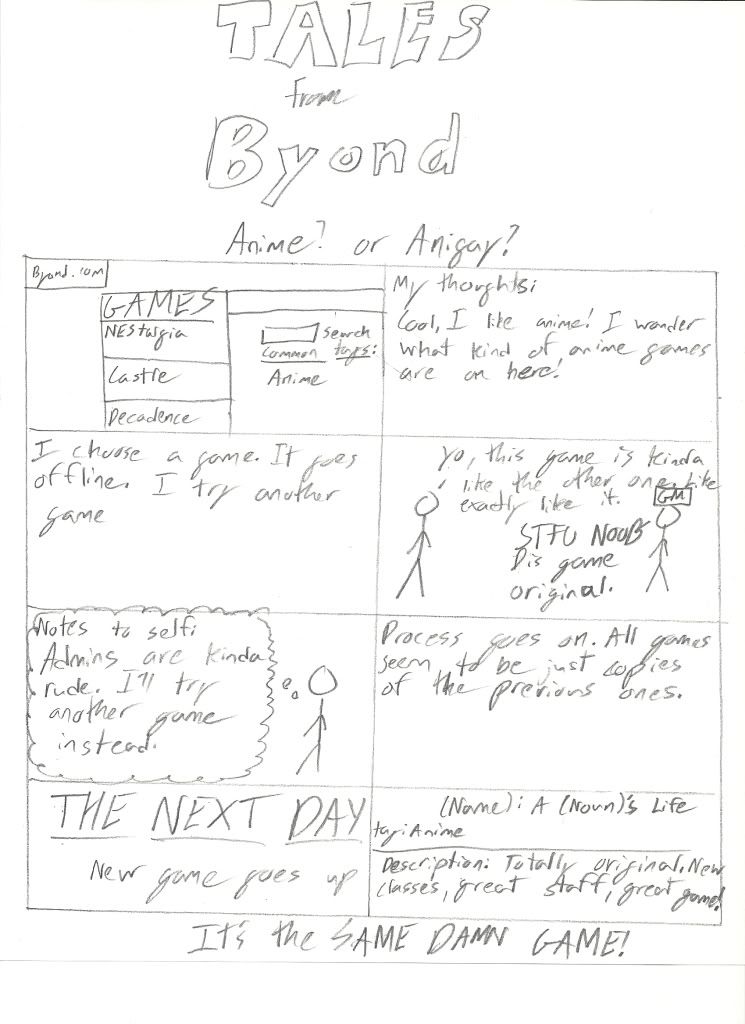 TALES
from
Byond
Anime? or Anigay?
Byond.com
GAMES
NEStalgia
Castle
Decadence
Search
Common tags:
Anime
My thoughts:
Cool, I like anime! I wonder
what kind of anime games
are on here!
I choose a game. It goes
offline. I try another
game
Yo, this game is kinda
like the other one. Like
exactly like it.
GM
STFU NOOB
Dis game
original.
Notes to self:
Admins are kinda
rude. I'll try
another game
instead.
Process goes on. All games
seem to be just copies
of the previous ones.
THE NEXT DAY
New game goes up
(Name): A (Noun)'s Life
tag: Anime
Description: Totally original. New
classes, great staff, great game!
It's the SAME DAMN GAME!